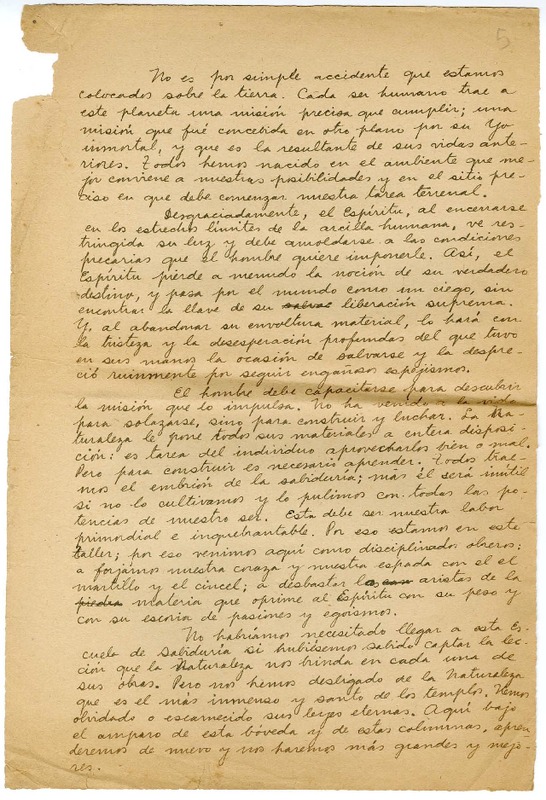 5
No es por simple accidente que estamos
colocados sobre la tierra. Cada ser humano trae a
este planeta una misión precisa que cumplir; una
misión que fué concebida en otro plano por su Yo
inmortal, y que es la resultante de sus vidas ante-
riores. Todos hemos nacido en el ambiente que me-
jor conviene a nuestras posibilidades y en el sitio pre-
ciso en que debe comenzar nuestra tarea terrenal.
Desgraciadamente, el Espíritu, al encerrarse
en los estrechos límites de la arcilla humana, ve res-
tringida su luz y debe amoldarse a las condiciones
precarias que el hombre quiere imponerle. Así, el
Espíritu pierde a menudo la noción de su verdadero
destino, y pasa por el mundo como un ciego, sin
encontrar la llave de su salvac liberación suprema.
Y, al abandonar su envoltura material, lo hará con
la tristeza y la desesperación profundas del que tuvo
en sus manos la ocasión de salvarse y la despre-
ció ruinmente por seguir engañosos espejismos.
El hombre debe capacitarse para descubrir
la misión que lo impulsa. No ha venido a la vida
para solazarse, sino para construir y luchar. La Na-
turaleza le pone todos sus materiales a entera disposi-
ción: es tarea del individuo aprovecharlos bien o mal.
Pero para construir es necesario aprender. Todos trae-
mos el embrión de la sabiduría; más él será inútil
si no lo cultivamos y lo pulimos con todas las po-
tencias de nuestro ser. Esta debe ser nuestra labor
primordial e inquebrantable. Por eso estamos en este
taller; por eso venimos aquí como disciplinados obreros:
a forjarnos nuestra coraza y nuestra espada con el el
martillo y el cincel; a desbastar las aristas de la
piedra materia que oprime al Espíritu con su peso y
con su escoria de pasiones y egoísmos.
No habríamos necesitado llegar a esta Es-
cuela de Sabiduría si hubiésemos sabido captar la lec-
ción que la Naturaleza nos brinda en cada una de
sus obras. Pero nos hemos desligado de la Naturaleza
que es el más inmenso y santo de los templos. Hemos
olvidado o escarnecido sus leyes eternas. Aquí bajo
el amparo de esta bóveda y de estas columnas, apren-
deremos de nuevo y nos haremos más grandes y mejo-
res.